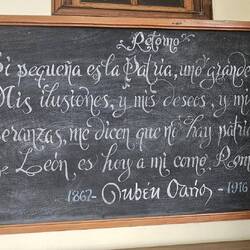 Retorno
Si pequeña es la Patria, uno grande
Mis ilusiones, y mis deseos, y mi
eranzas, me dicen que no hay patri
León, es hoy a mi como Rom
1867- Rubén Darío 1916